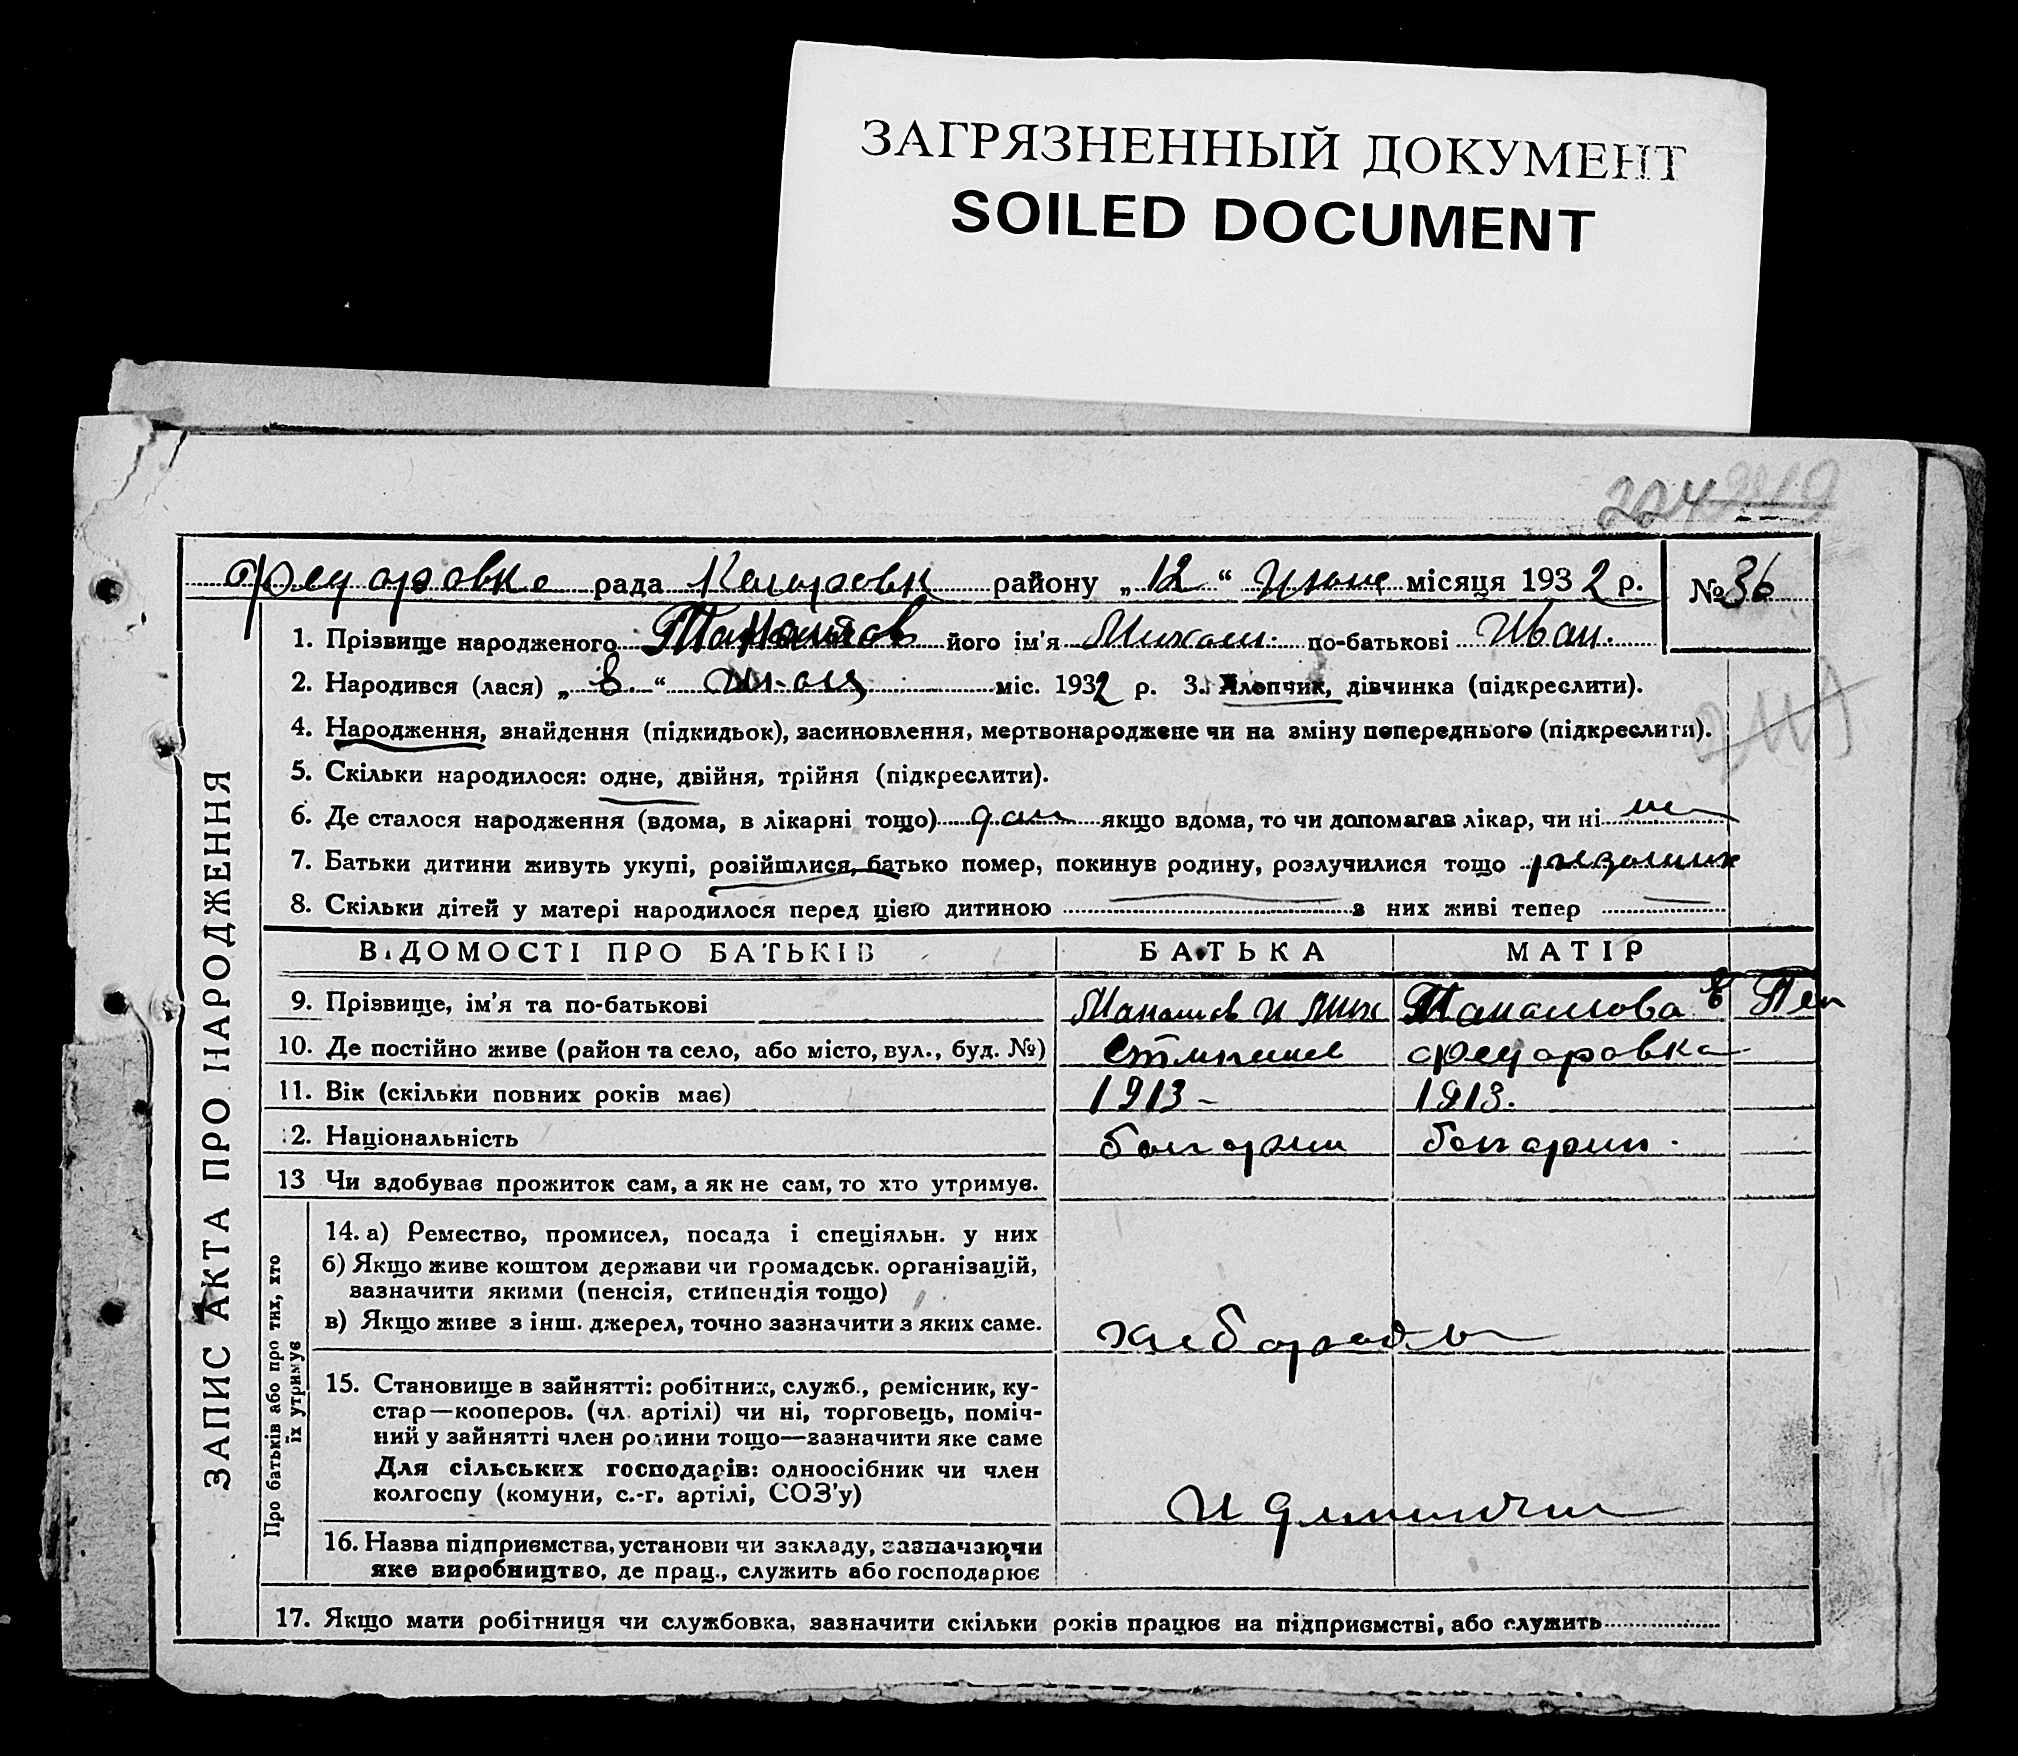 ЗАГРЯЗНЕННЫЙ ДОКУМЕНТ
SOILED DOCUMENT
224
Федоровке рада району „12“ місяця 1932 р. № 36
1. Прізвище народженого його ім'я Михаил. по-батькові Иван.
2. Народився (лася) „8.“ міс. 1932 р. 3. Хлопчик, дівчинка (підкреслити).
4. Народження, знайдення (підкидьок), засиновлення, мертвонароджене чи на зміну попереднього (підкреслити).
5. Скільки народилося: одне, двійня, трійня (підкреслити).
6. Де сталося народження (вдома, в лікарні тощо) якщо вдома, то чи допомагав лікар, чи ні
7. Батьки дитини живуть укупі, розійшлися, батько помер, покинув родину, розлучилися тощо
8. Скільки дітей у матері народилося перед цією дитиною з них живі тепер
ЗАПИС АКТА ПРО НАРОДЖЕННЯ
ВІДОМОСТІ ПРО БАТЬКІВ БАТЬКА МАТІР
9. Прізвище, ім'я та по-батькові Танасов И Мих Танасова
10. Де постійно живе (район та село, або місто, вул., буд. №) Федоровка
11. Вік (скільки повних років має) 1913 - 1913.
12. Національність болгарин болгарин.
13 Чи здобуває прожиток сам, а як не сам, то хто утримує.
Про батьків або про тих, хто
їх утримує
14. а) Ремество, промисел, посада і спеціяльн. у них
б) Якщо живе коштом держави чи громадськ. організацій,
зазначити якими (пенсія, стипендія тощо)
в) Якщо живе з інш. джерел, точно зазначити з яких саме. хлебороды
15. Становище в зайнятті: робітник, служб., ремісник, ку-
стар—кооперов. (чл. артілі) чи ні, торговець, поміч-
ний у зайнятті член родини тощо—зазначити яке саме
Для сільських господарів: одноосібник чи член
колгоспу (комуни, с.-г. артілі, СОЗ'у)
16. Назва підприємства, установи чи закладу, зазначаючи
яке виробництво, де прац., служить або господарює
17. Якщо мати робітниця чи службовка, зазначити скільки років працює на підприємстві, або служить